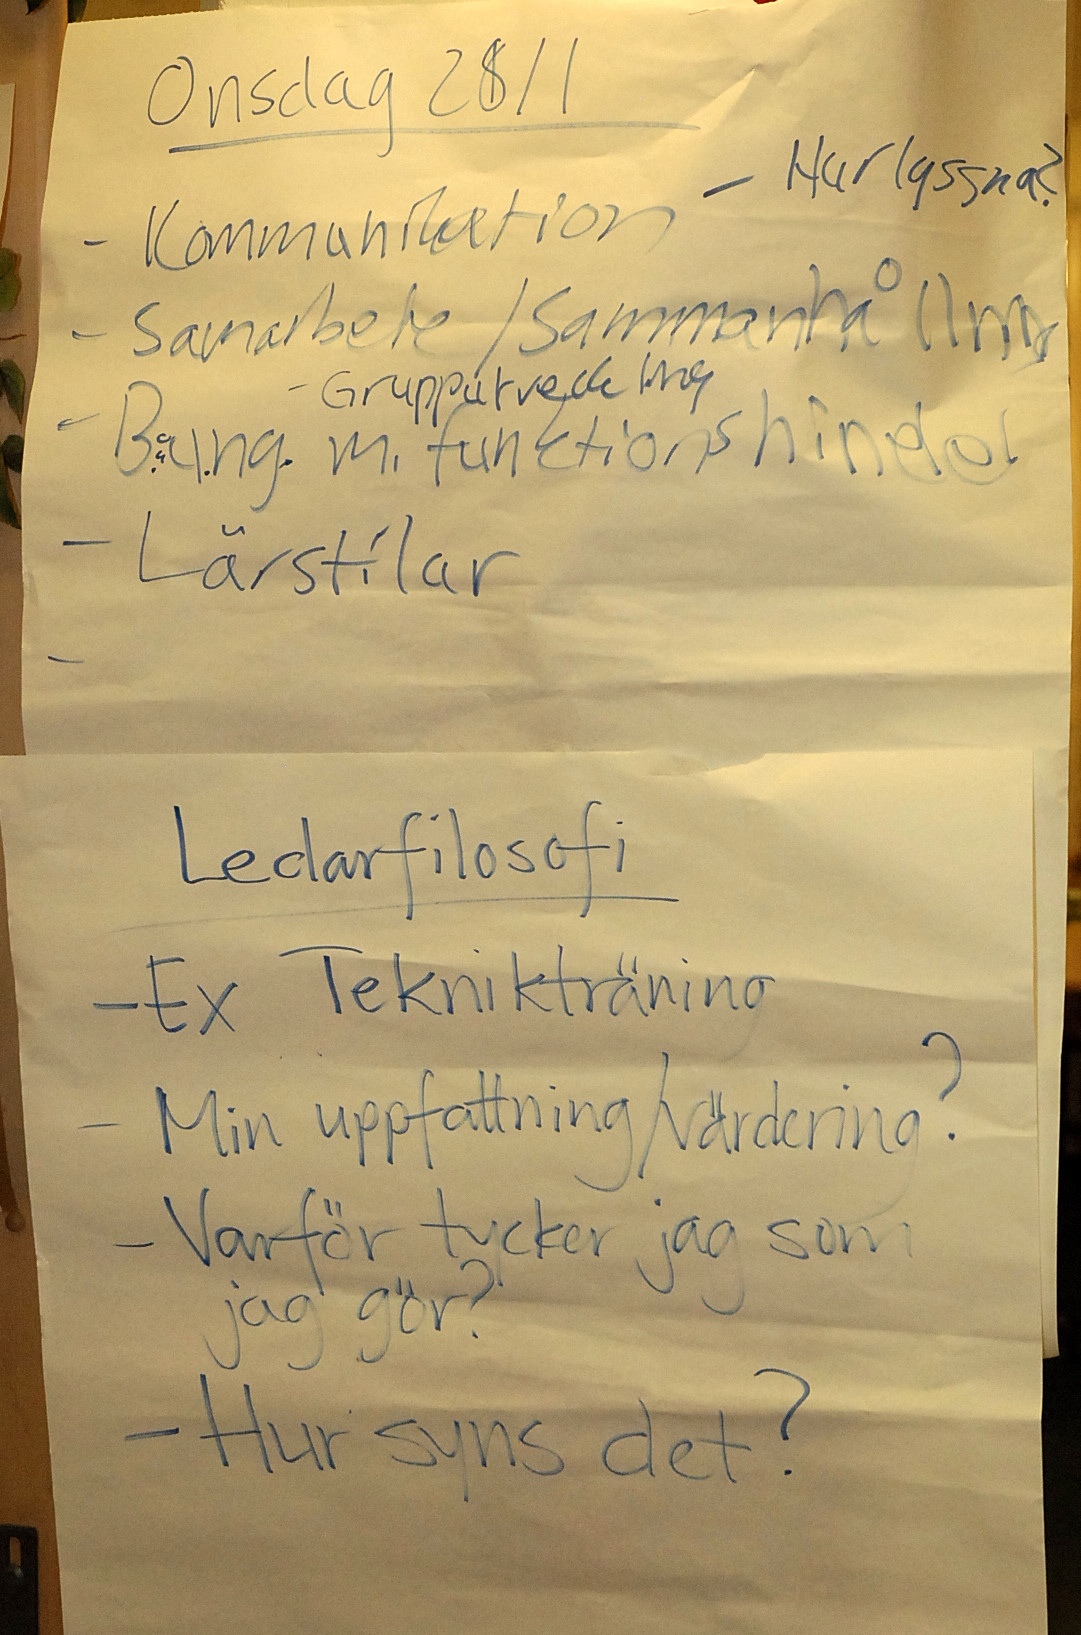 Onsdag 28/1
- Kommunikation - Hur lyssna?
- Samarbete / Sammanhållning
- Grupputveckling
- m. funktionshinder
- Lärstilar
-
Ledarfilosofi
- Ex Teknikträning
- Min uppfattning/värdering?
- Varför tycker jag som
jag gör?
- Hur syns det?